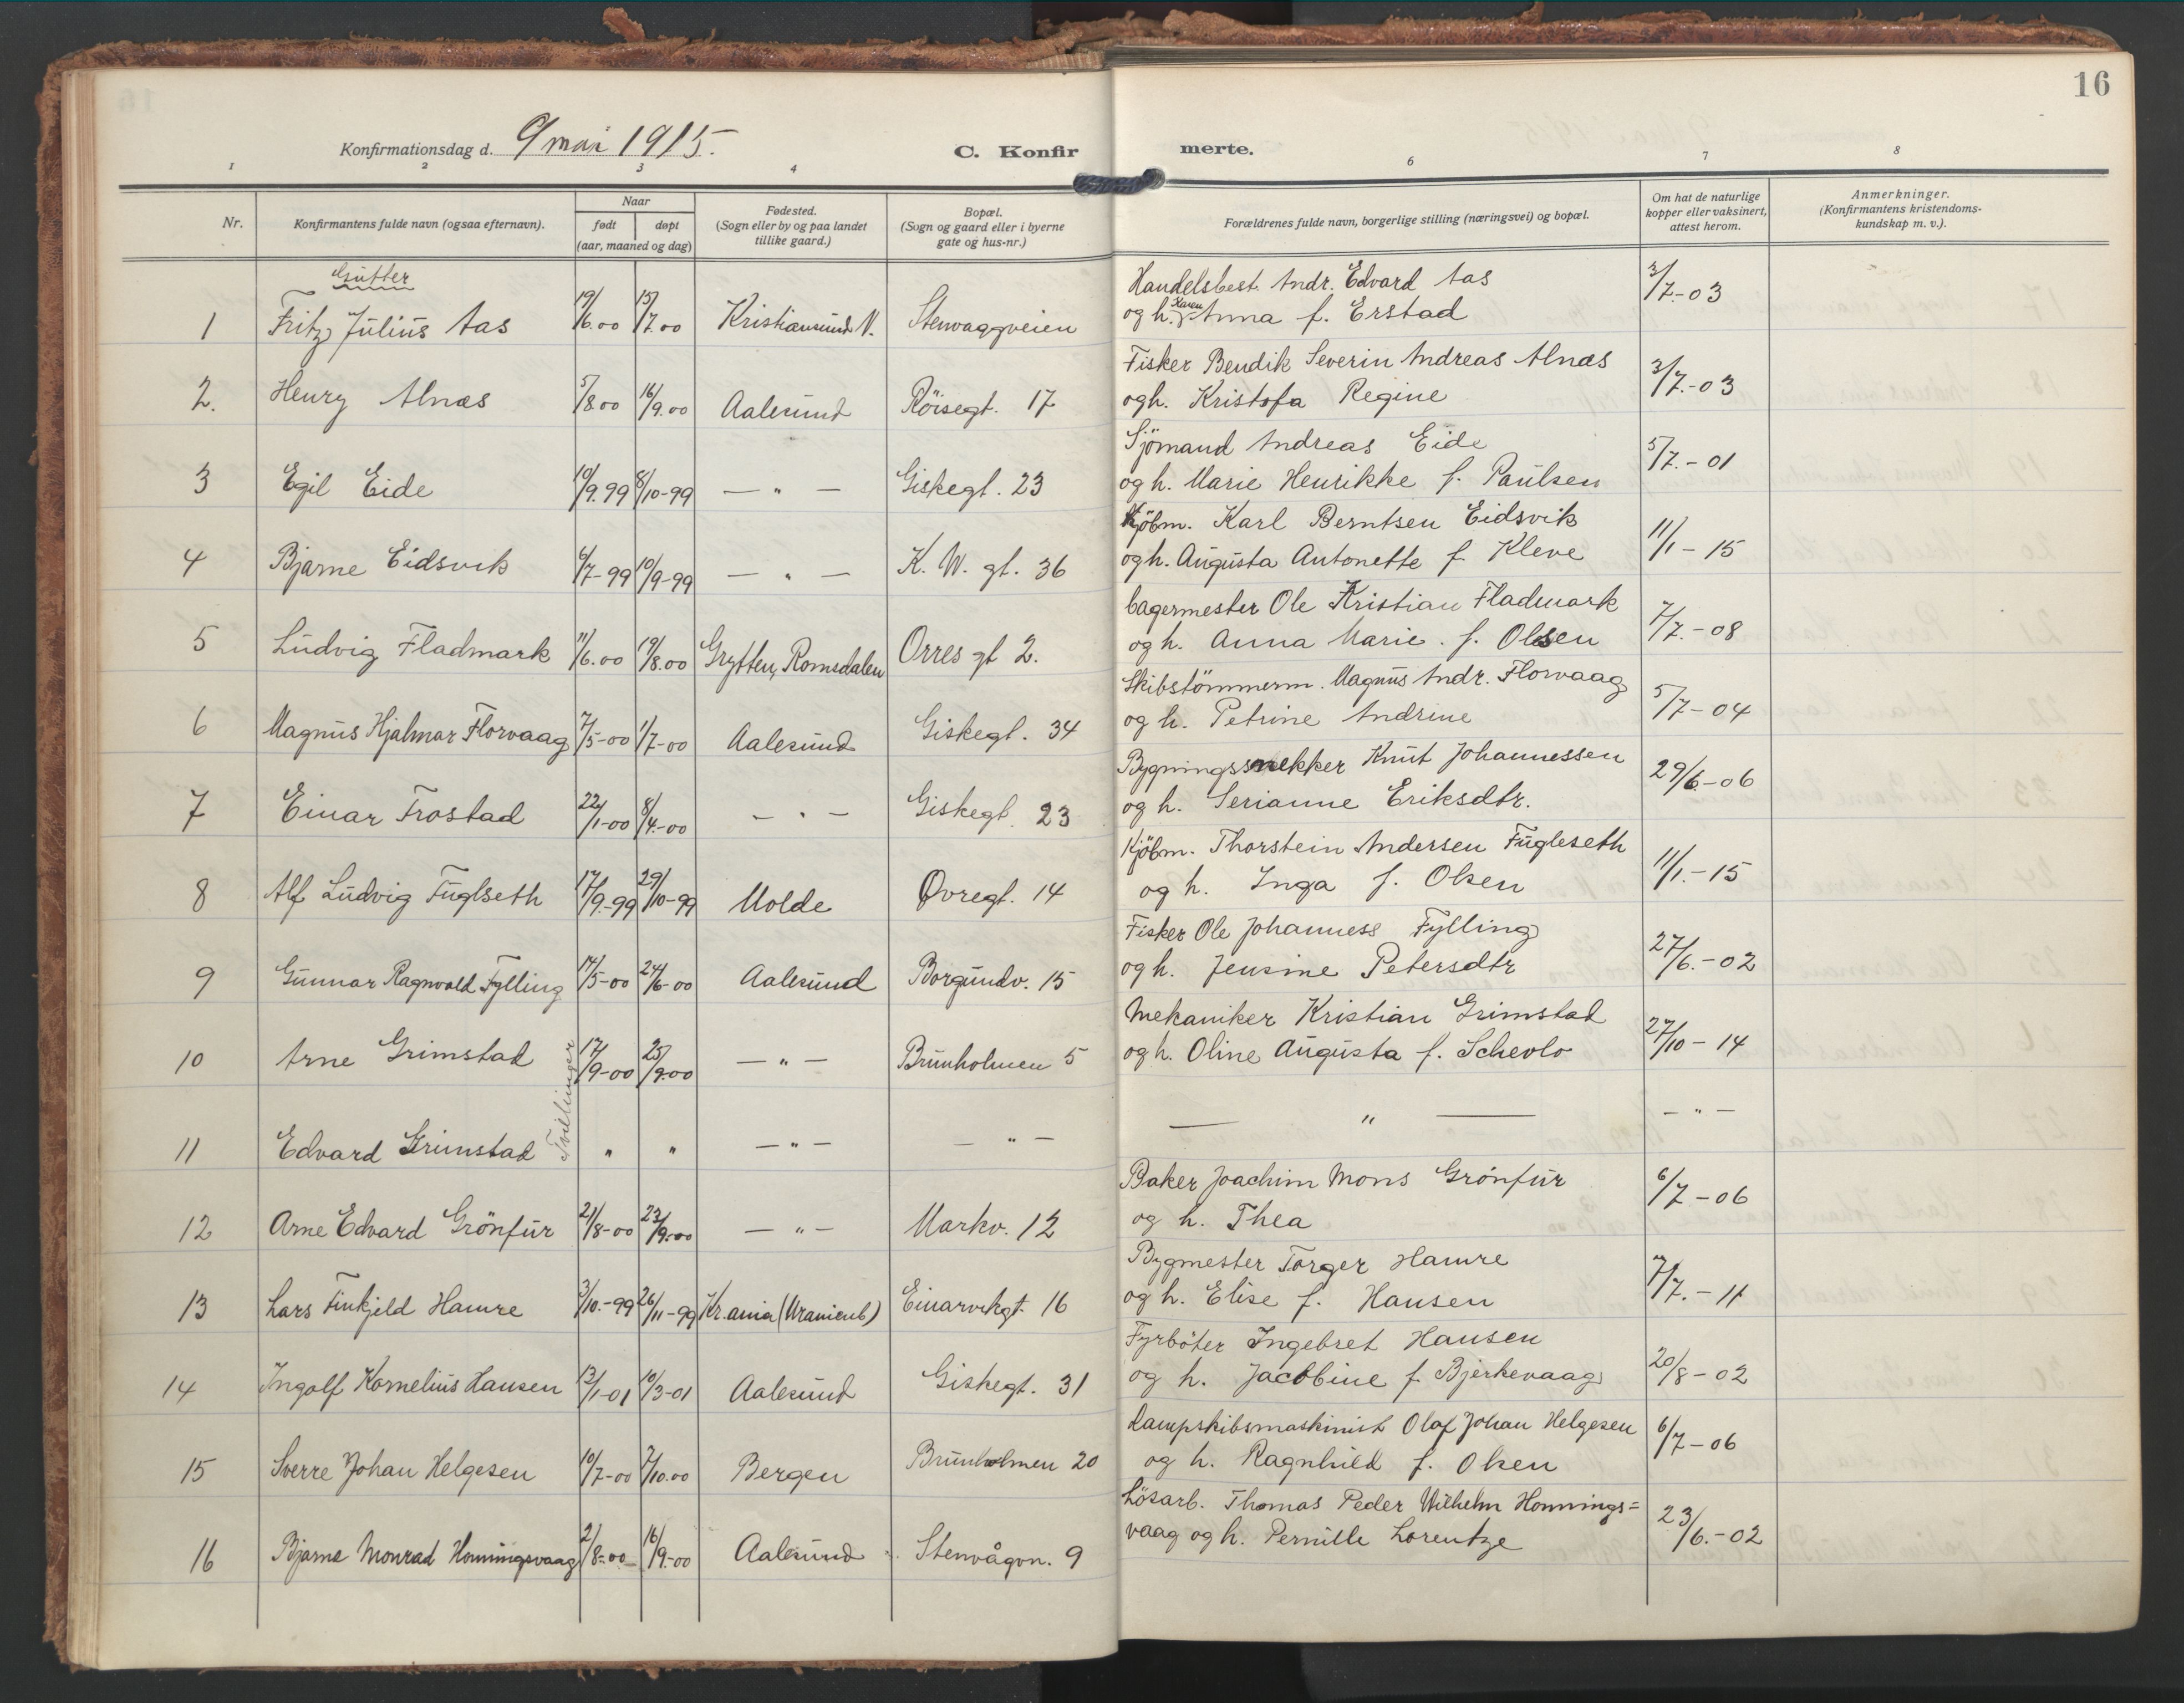 16
Konfirmationsdag d. 9/ mai 1915.
C. Konfirmerte.
1 2 3 4 6 7 8
Nr. | Konfirmantens fulde navn (ogsaa efternavn). | Naar født | døpt (aar, maaned og dag) | Fødested. (Sogn eller by og paa landet tillike gaard.) | Bopæl. (Sogn og gaard eller i byerne gate og hus-nr.) | Forældrenes fulde navn, borgerlige stilling (næringsvei) og bopæl. | Om hat de naturlige kopper eller vaksinert, attest herom. | Anmerkninger. (Konfirmantens kristendoms-kundskap m. v.).
Gutter
1 Fritz Julius Aas 19/6.00 15/7.00 Kristiansund N. Stenvaagveien
Handelsbest. Andr. Edvard Aas
og h. Karen Anna f. Erstad 3/7.-03
2. Henry Alnæs 5/8.00 16/9.00 Aalesund Röisegt. 17
Fisker Bendik Severin Andreas Alnæs
og h. Kristofa Regine 3/7.-03
3 Egil Eide 10/9.99 8/10-99 — " — Giskegt. 23
Sjömand Andreas Eide
og h. Marie Henrikke f. Paulsen 5/7.-01
4 Bjarne Eidsvik 6/7-99 10/9-99 — " — K. W. gt. 36
Kjöbm. Karl Berntsen Eidsvik
og h. Augusta Antonette f Kleve 11/1-15
5 Ludvig Fladmark 11/6.00 19/8.00 Grytten, Romsdalen Orres gt 2.
bagermester Ole Kristian Fladmark
og h. Anna Marie. f. Olsen 7/7.-08
6 Magnus Hjalmar Florvaag 7/5-00 1/7-00 Aalesund Giskegt. 34
Skibstömmerm. Magnus Andr. Florvaag
og h. Petrine Andrine 5/7-04
7 Einar Frostad 22/1-00 8/4.-00 — " — Giskegt. 23
Bygningssnekker Knut Johannessen
og h. Serianne Eriksdtr. 29/6-06
8 Alf Ludvig Fuglseth 17/9.-99 29/10-99 Molde Øvregt. 14
Kjöbm. Thorstein Andersen Fugleseth
og h. Inga f. Olsen 11/1.-15
9 Gunnar Ragnvald Fylling 17/5-00 24/6-00 Aalesund Borgundv. 15
Fisker Ole Johanness Fylling
og h. Jensine Petersdtr 27/6.-02
10 Arne Grimstad 17/9-00 25/9.00 — " — Brunholmen 5
Tvillinger
Mekaniker Kristian Grimstad
og h. Oline Augusta f. Schevlo 27/10-14
11 Edvard Grimstad " " — " — — " —
— " — — " —
12 Arne Edvard Grönfur 21/8-00 23/9.00 — " — Markv. 12
Baker Joachim Mons Grönfur
og h. Thea 6/7-06
13 Lars Finkjeld Hamre 3/10.-99 26/11-99 Kr.ania (Uranienb) Einarvikgt. 16
Bygmester Torger Hamre
og h. Elise f. Hansen 7/7.-11
14 Ingolf Kornelius Hansen 13/1-01 10/3-01 Aalesund Giskegt. 31
Fyrböter Ingebret Hansen
og h. Jacobine f. Bjerkevaag 20/8-02
15 Sverre Johan Helgesen 10/7-00 7/10.00 Bergen Brunholmen 20
Dampskibsmaskinist Olaf Johan Helgesen
og h. Ragnhild f. Olsen 6/7-06
16 Bjarne Monrad Honningsvaag 2/8-00 16/9.-00 Aalesund Stenvågvn. 9
Lösarb. Thomas Peder Wilhelm Honnings=
vaag og h. Pernille Lorentze 23/6.-02